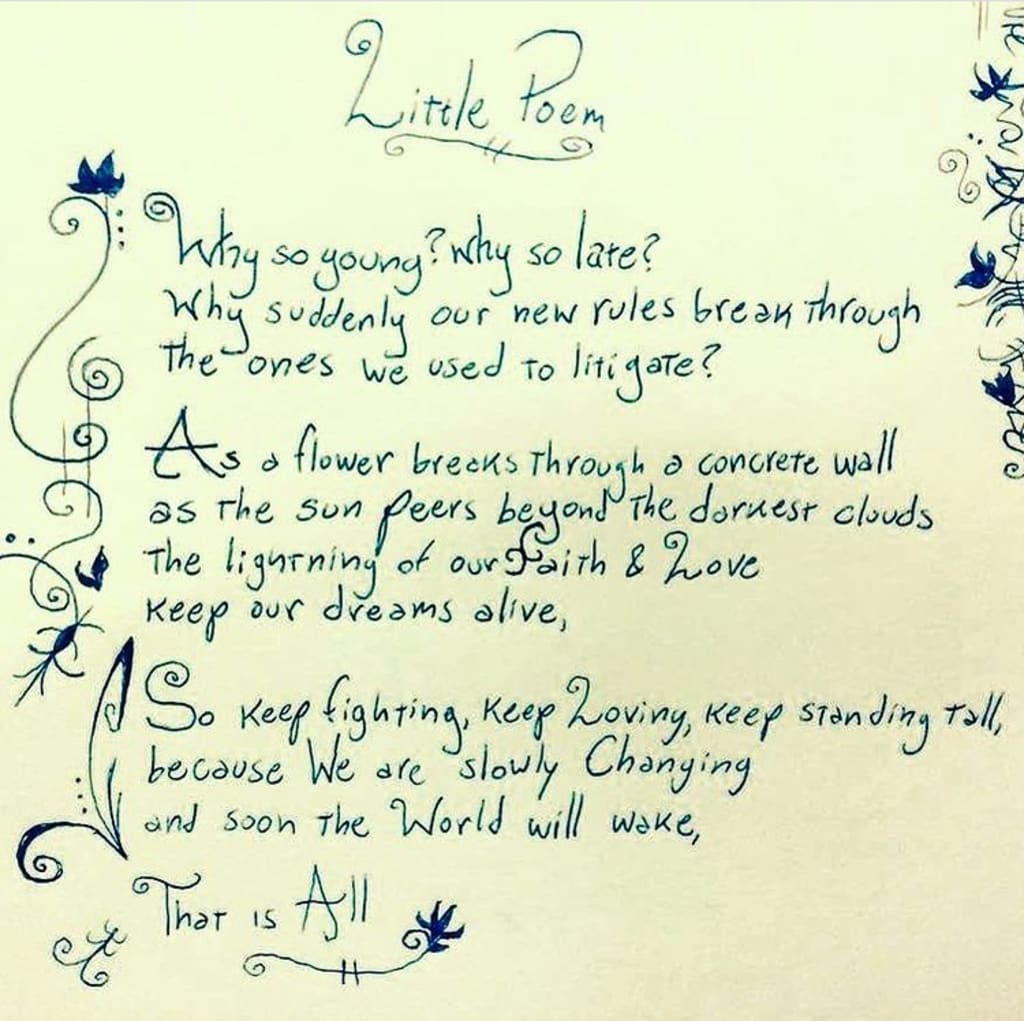 Little Poem
Why so young? why so late?
Why suddenly our new rules break through
the ones we used to litigate?
As a flower breaks through a concrete wall
as the sun peers beyond the darkest clouds
the lightning of our Faith & Love
keep our dreams alive,
So keep fighting, keep Loving, keep standing tall,
because We are slowly Changing
and soon the World will wake,
That is All